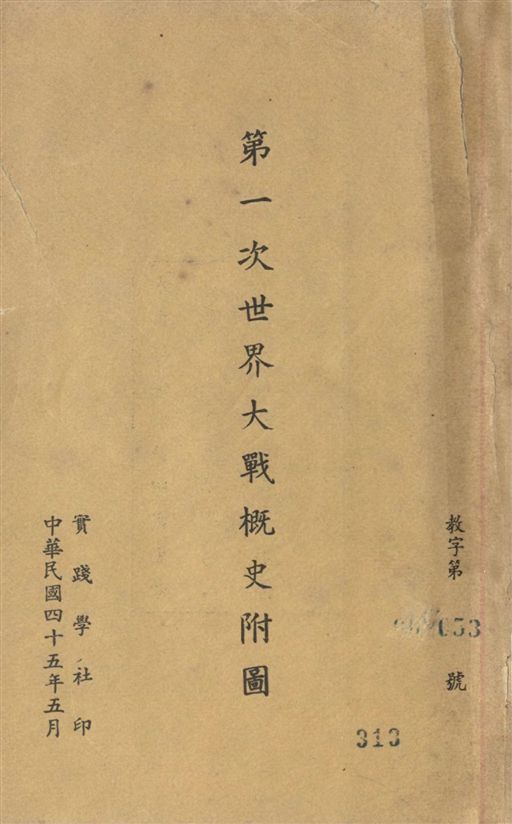 教字第 053 號
313
第一次世界大戰概史附圖
實踐學社印
中華民國四十五年五月